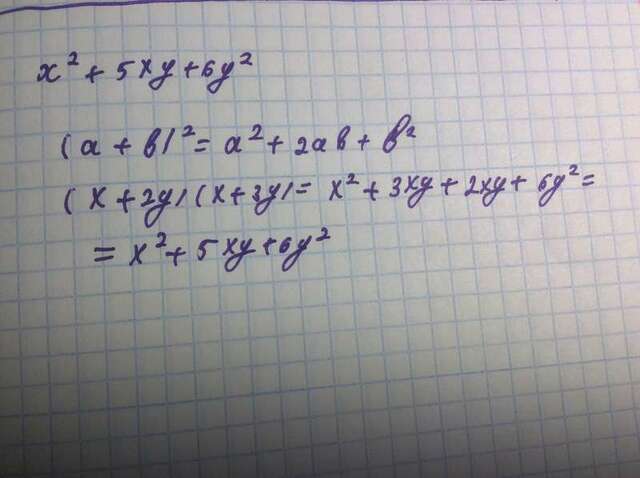 x² + 5xy + 6y²
(a + b)² = a² + 2ab + b²
(x + 2y)(x + 3y) = x² + 3xy + 2xy + 6y² =
= x² + 5xy + 6y²